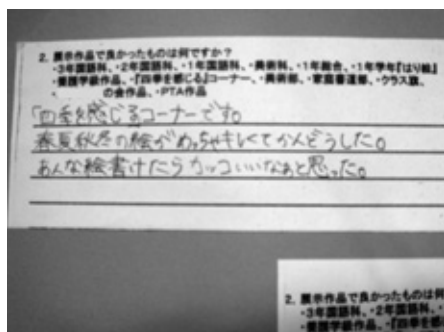 2. 展示作品で良かったものは何ですか？
・3年国語科、・2年国語科、・1年国語科、・美術科、・1年総合、・1年学年『はり絵』
・養護学級作品、・『四季を感じる』コーナー、・美術部、・家庭書道部、・クラス旗、
・ の会作品、・PTA作品
「四季を感じるコーナーです。
春夏秋冬の絵がめっちゃキレくてかんどうした。
あんな絵書けたらカッコいいなぁと思った。
2. 展示作品で良かったものは何
・3年国語科、・2年国語科、・1
・養護学級作品、・『四季を感